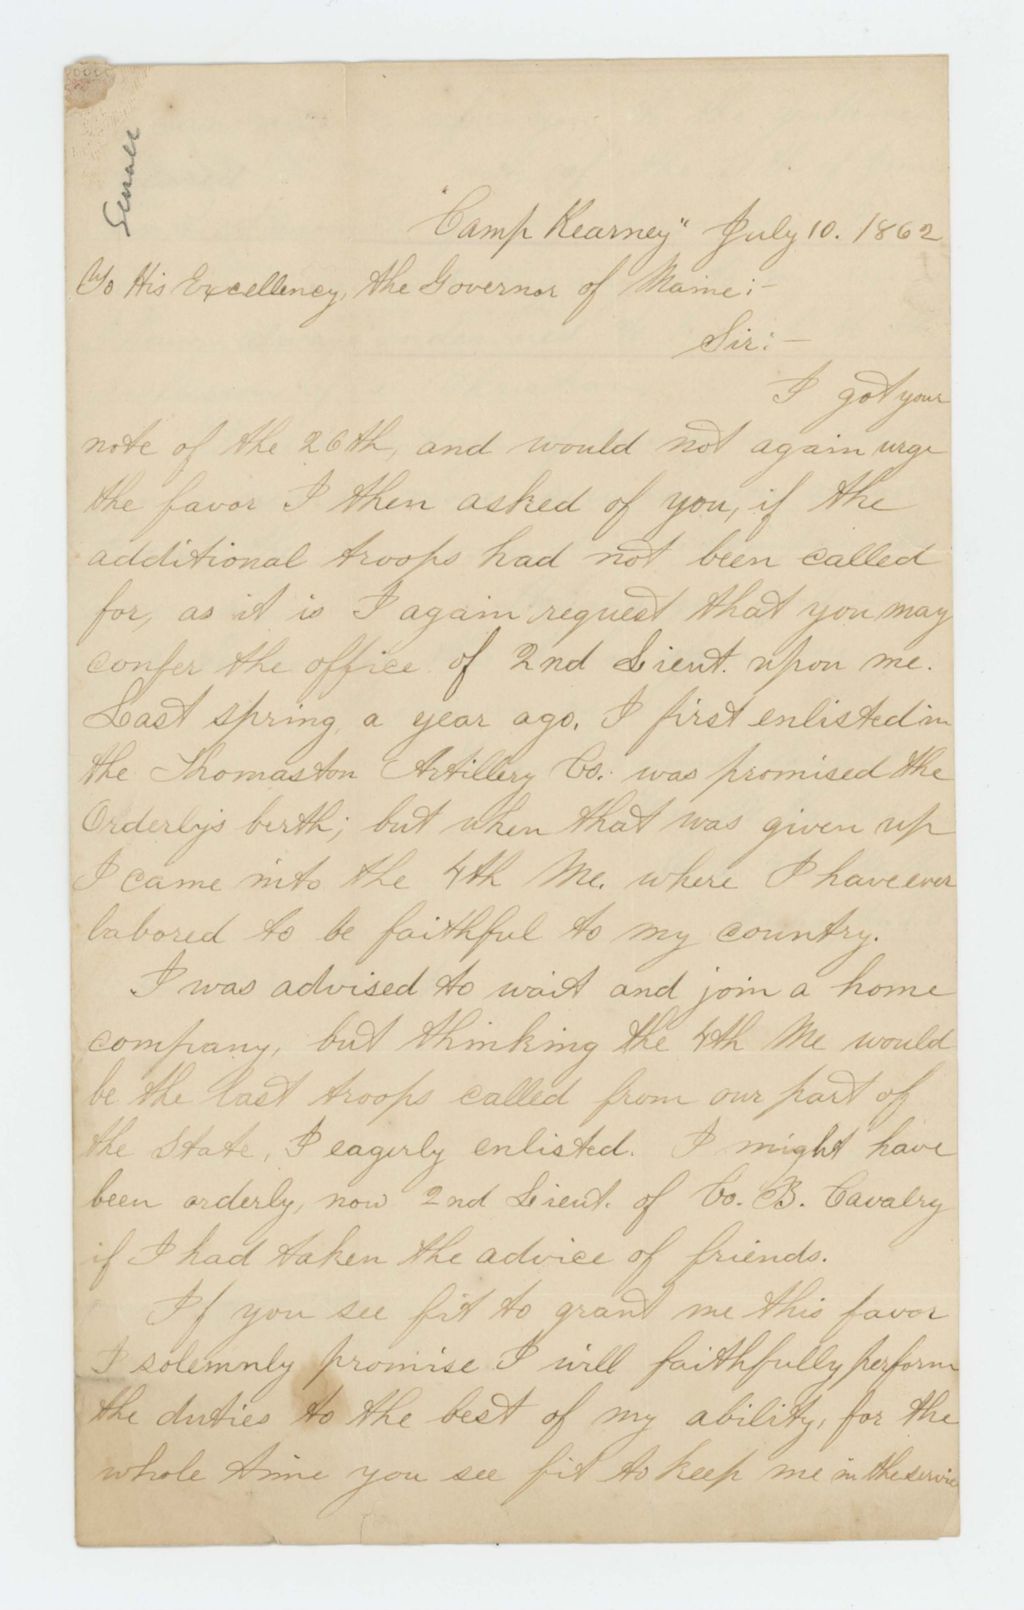 "Camp Kearney" July 10. 1862
To His Excellency, the Governor of Maine:-
Sir:-
I got your
note of the 26th, and would not again urge
the favor I then asked of you, if the
additional troops had not been called
for, as it is I again request that you may
confer the office of 2nd Lieut. upon me.
Last spring, a year ago, I first enlisted in
the Thomaston Artillery Co. was promised the
Orderly's berth; but when that was given up
I came into the 4th Me. where I have ever
labored to be faithful to my country.
I was advised to wait and join a home
company, but thinking the 4th Me would
be the last troops called from our part of
the State, I eagerly enlisted. I might have
been orderly, now 2nd Lieut. of Co. B. Cavalry
if I had taken the advice of friends.
If you see fit to grant me this favor
I solemnly promise I will faithfully perform
the duties to the best of my ability, for the
whole time you see fit to keep me in the service